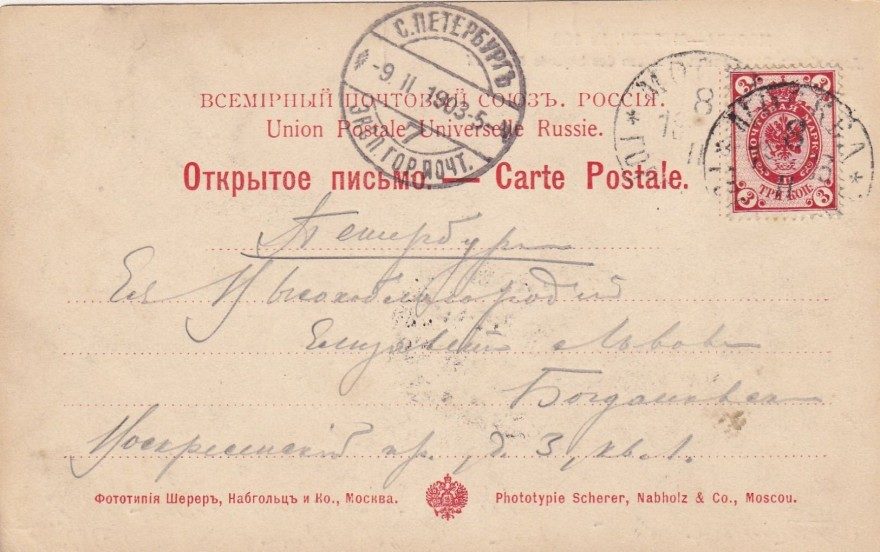 С. ПЕТЕРБУРГЪ
-9 II. 1903-5-
7
ЭКСП. ГОР. ПОЧТ.
8
МОСКВА
ВСЕМІРНЫЙ ПОЧТОВЫЙ СОЮЗЪ. РОССІЯ.
Union Postale Universelle Russie.
Открытое письмо. — Carte Postale.
3 3
ПОЧТОВАЯ МАРКА
ТРИ КОП.
3 3
Петербург
Ея Высокоблагородій
Елизавете Львовне
Богдановск
Воскресенскій пр., д. 3, кв. 1.
Фототипія Шереръ, Набгольцъ и Ко., Москва.
Phototypie Scherer, Nabholz & Co., Moscou.